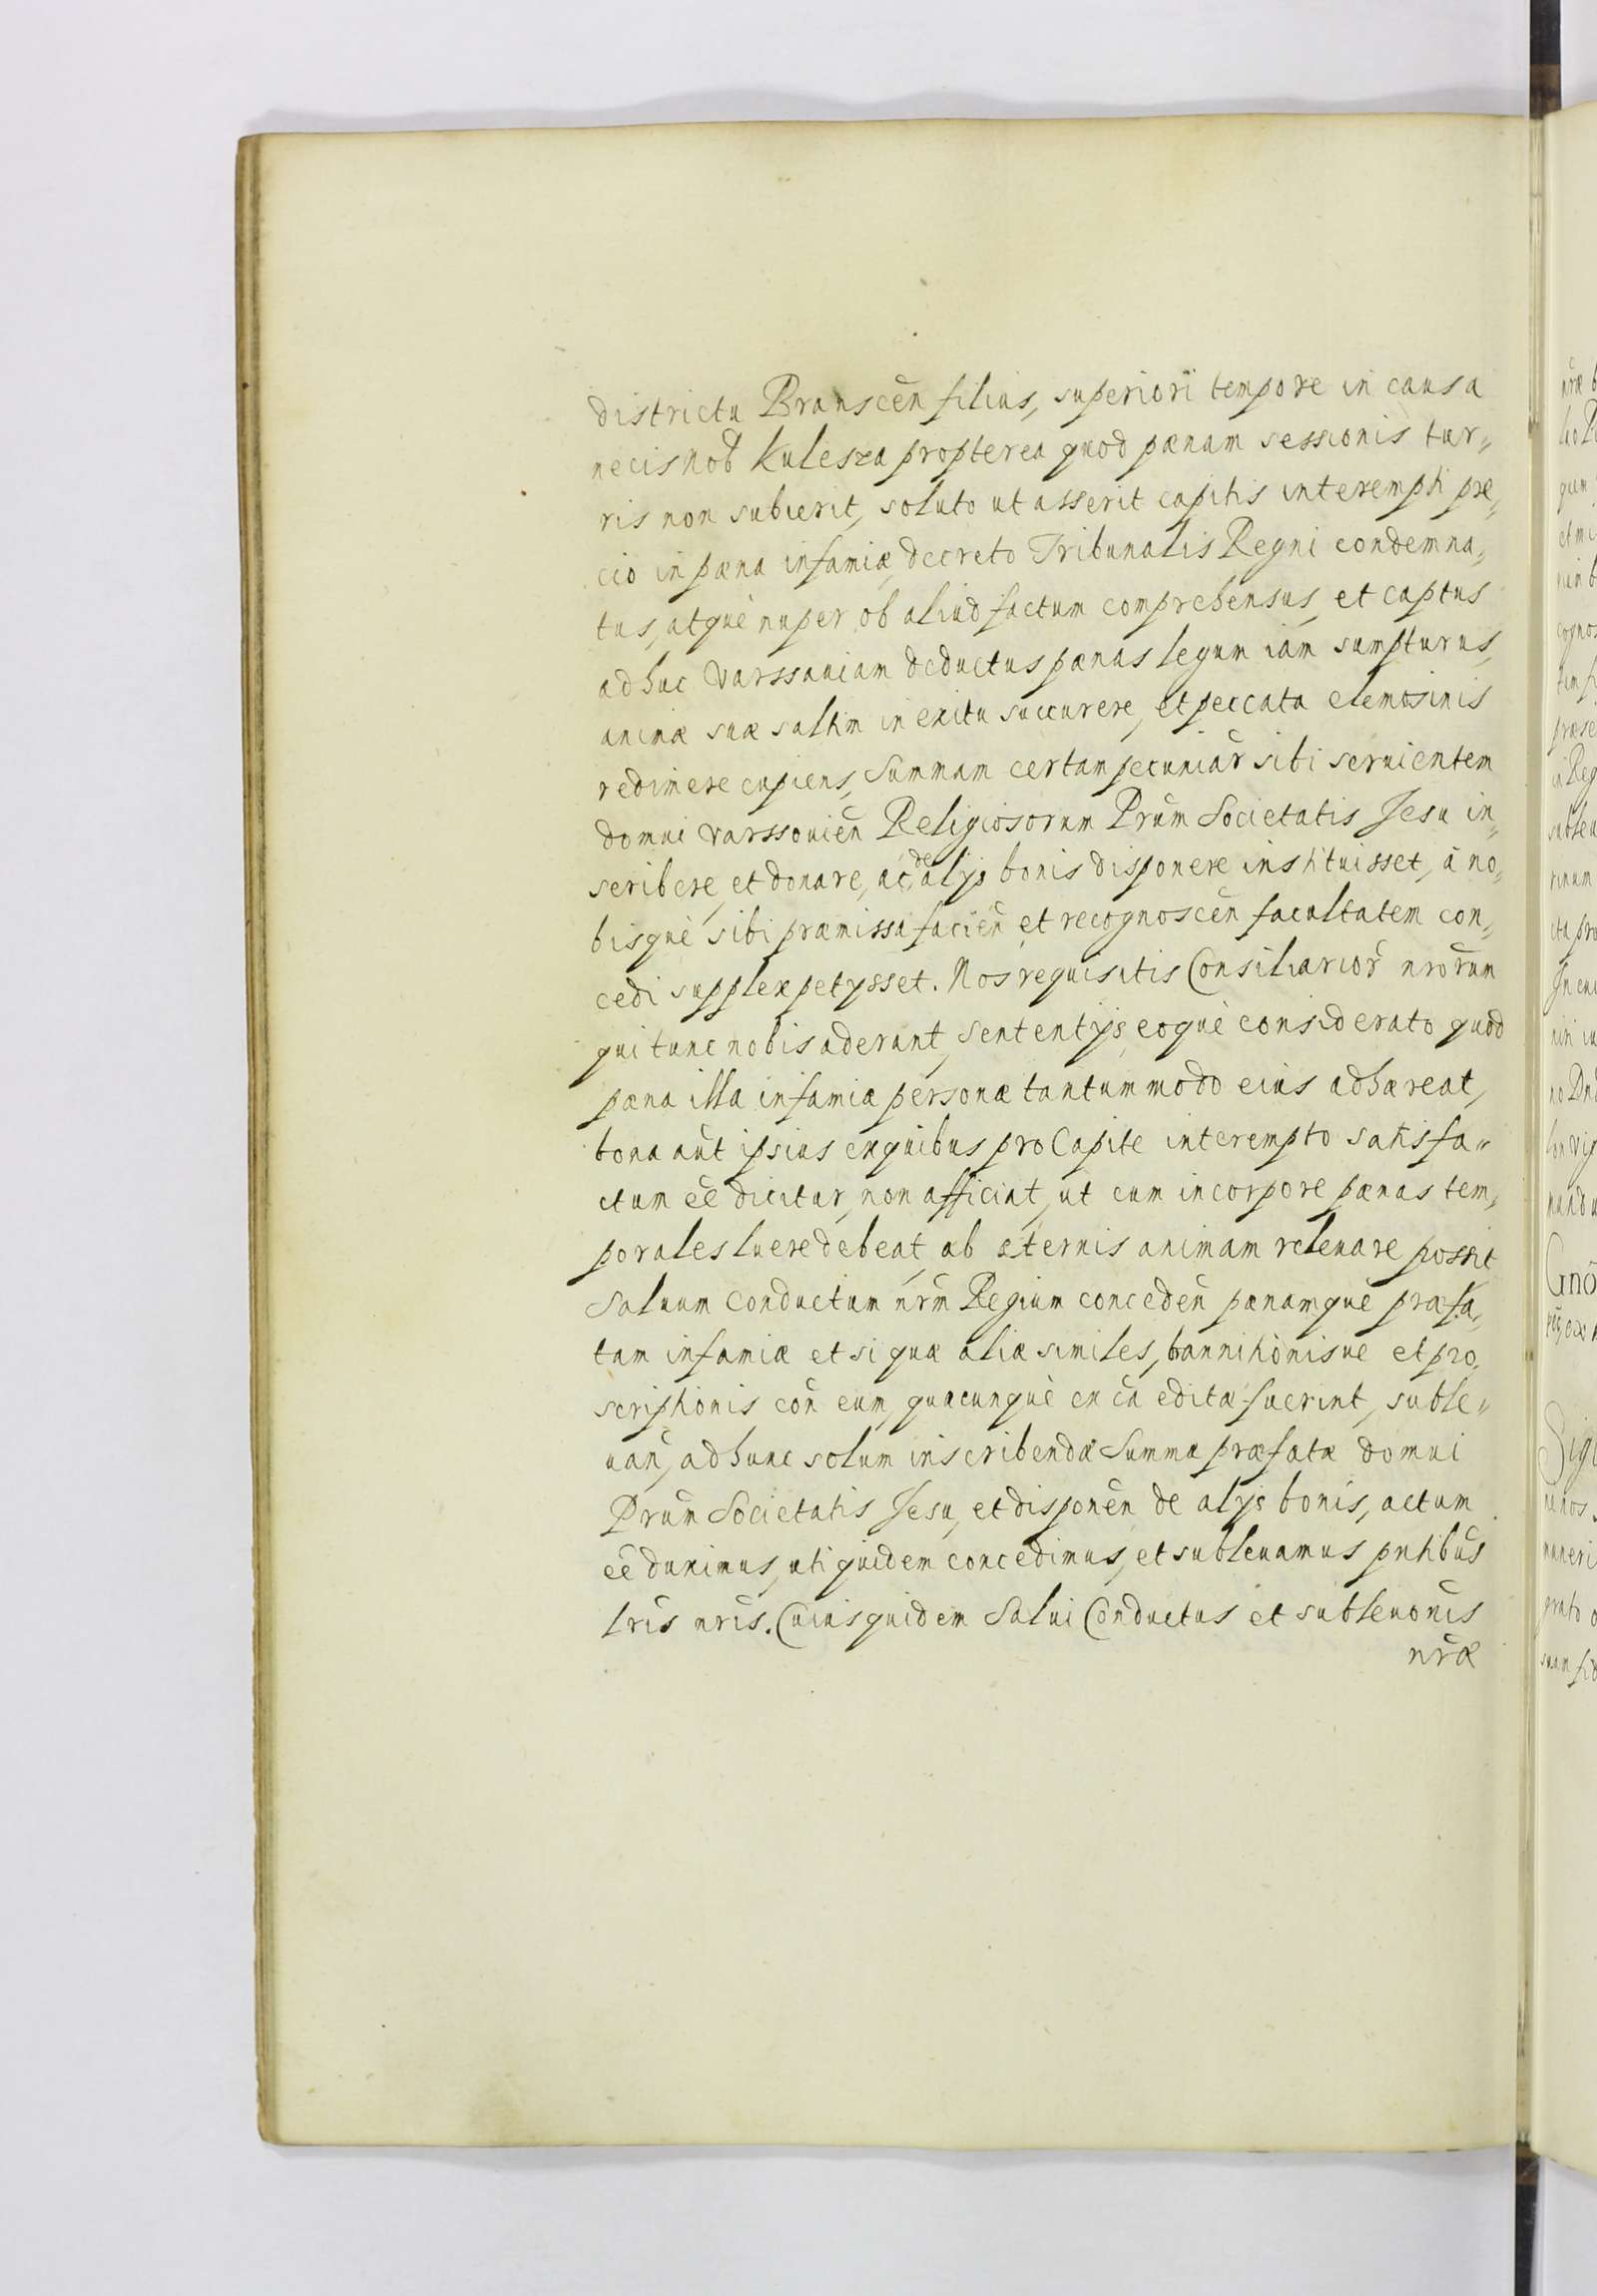 districtu Branscen̄ filius, superiori tempore in causa
necis Nob̄ Kulesza propterea quod pænam sessionis tur„
ris non subierit, soluto ut asserit capitis interempti pre„
cio in pæna infamiæ decreto Tribunalis Regni condemna„
tus, atquè nuper ob aliud factum comprehensus, et captus
adhuc Varssauiam deductus pænas legum iam sumpturus,
animæ suæ saltim in exitu succurere, et peccata elemosinis
redimere cupiens, Summam certam pecuniar̄ sibi seruientem
domui Varssouien̄ Religiosorum Prūm Societatis Jesu in„
scribere, et donare, ac de alys bonis disponere instituisset, à no„
bisquè sibi præmissa facien̄ et recognoscen̄ facultatem con„
cedi supplex petysset. Nos requisitis Consiliarior̄ nrōrum
qui tunc nobis aderant, sententys, eoquè considerato quod
pæna illa infamiæ personæ tantummodo eius adhæreat,
bona aūt ipsius ex quibus pro Capite interempto satisfa„
ctum eē dicitur, non afficiat, ut cum in corpore pænas tem„
porales luere debeat, ab æternis animam releuare possit
Saluum Conductum nr̄m Regium conceden̄ pænamquè præfa„
tam infamiæ et si quæ aliæ similes, bannitionisuè et pro„
scriptionis con̄ eum, quacunquè ex cā editæ fuerint, suble„
uan̄, ad hunc solum inscribendæ Summæ præfatæ domui
Prūm Societatis Jesu, et disponen̄ de alys bonis, actum
eē duximus, uti quidem concedimus, et subleuamus pn̄tibus
lr̄is nr̄is. Cuius quidem Salui Conductus et subleuōnis
nr̄æ